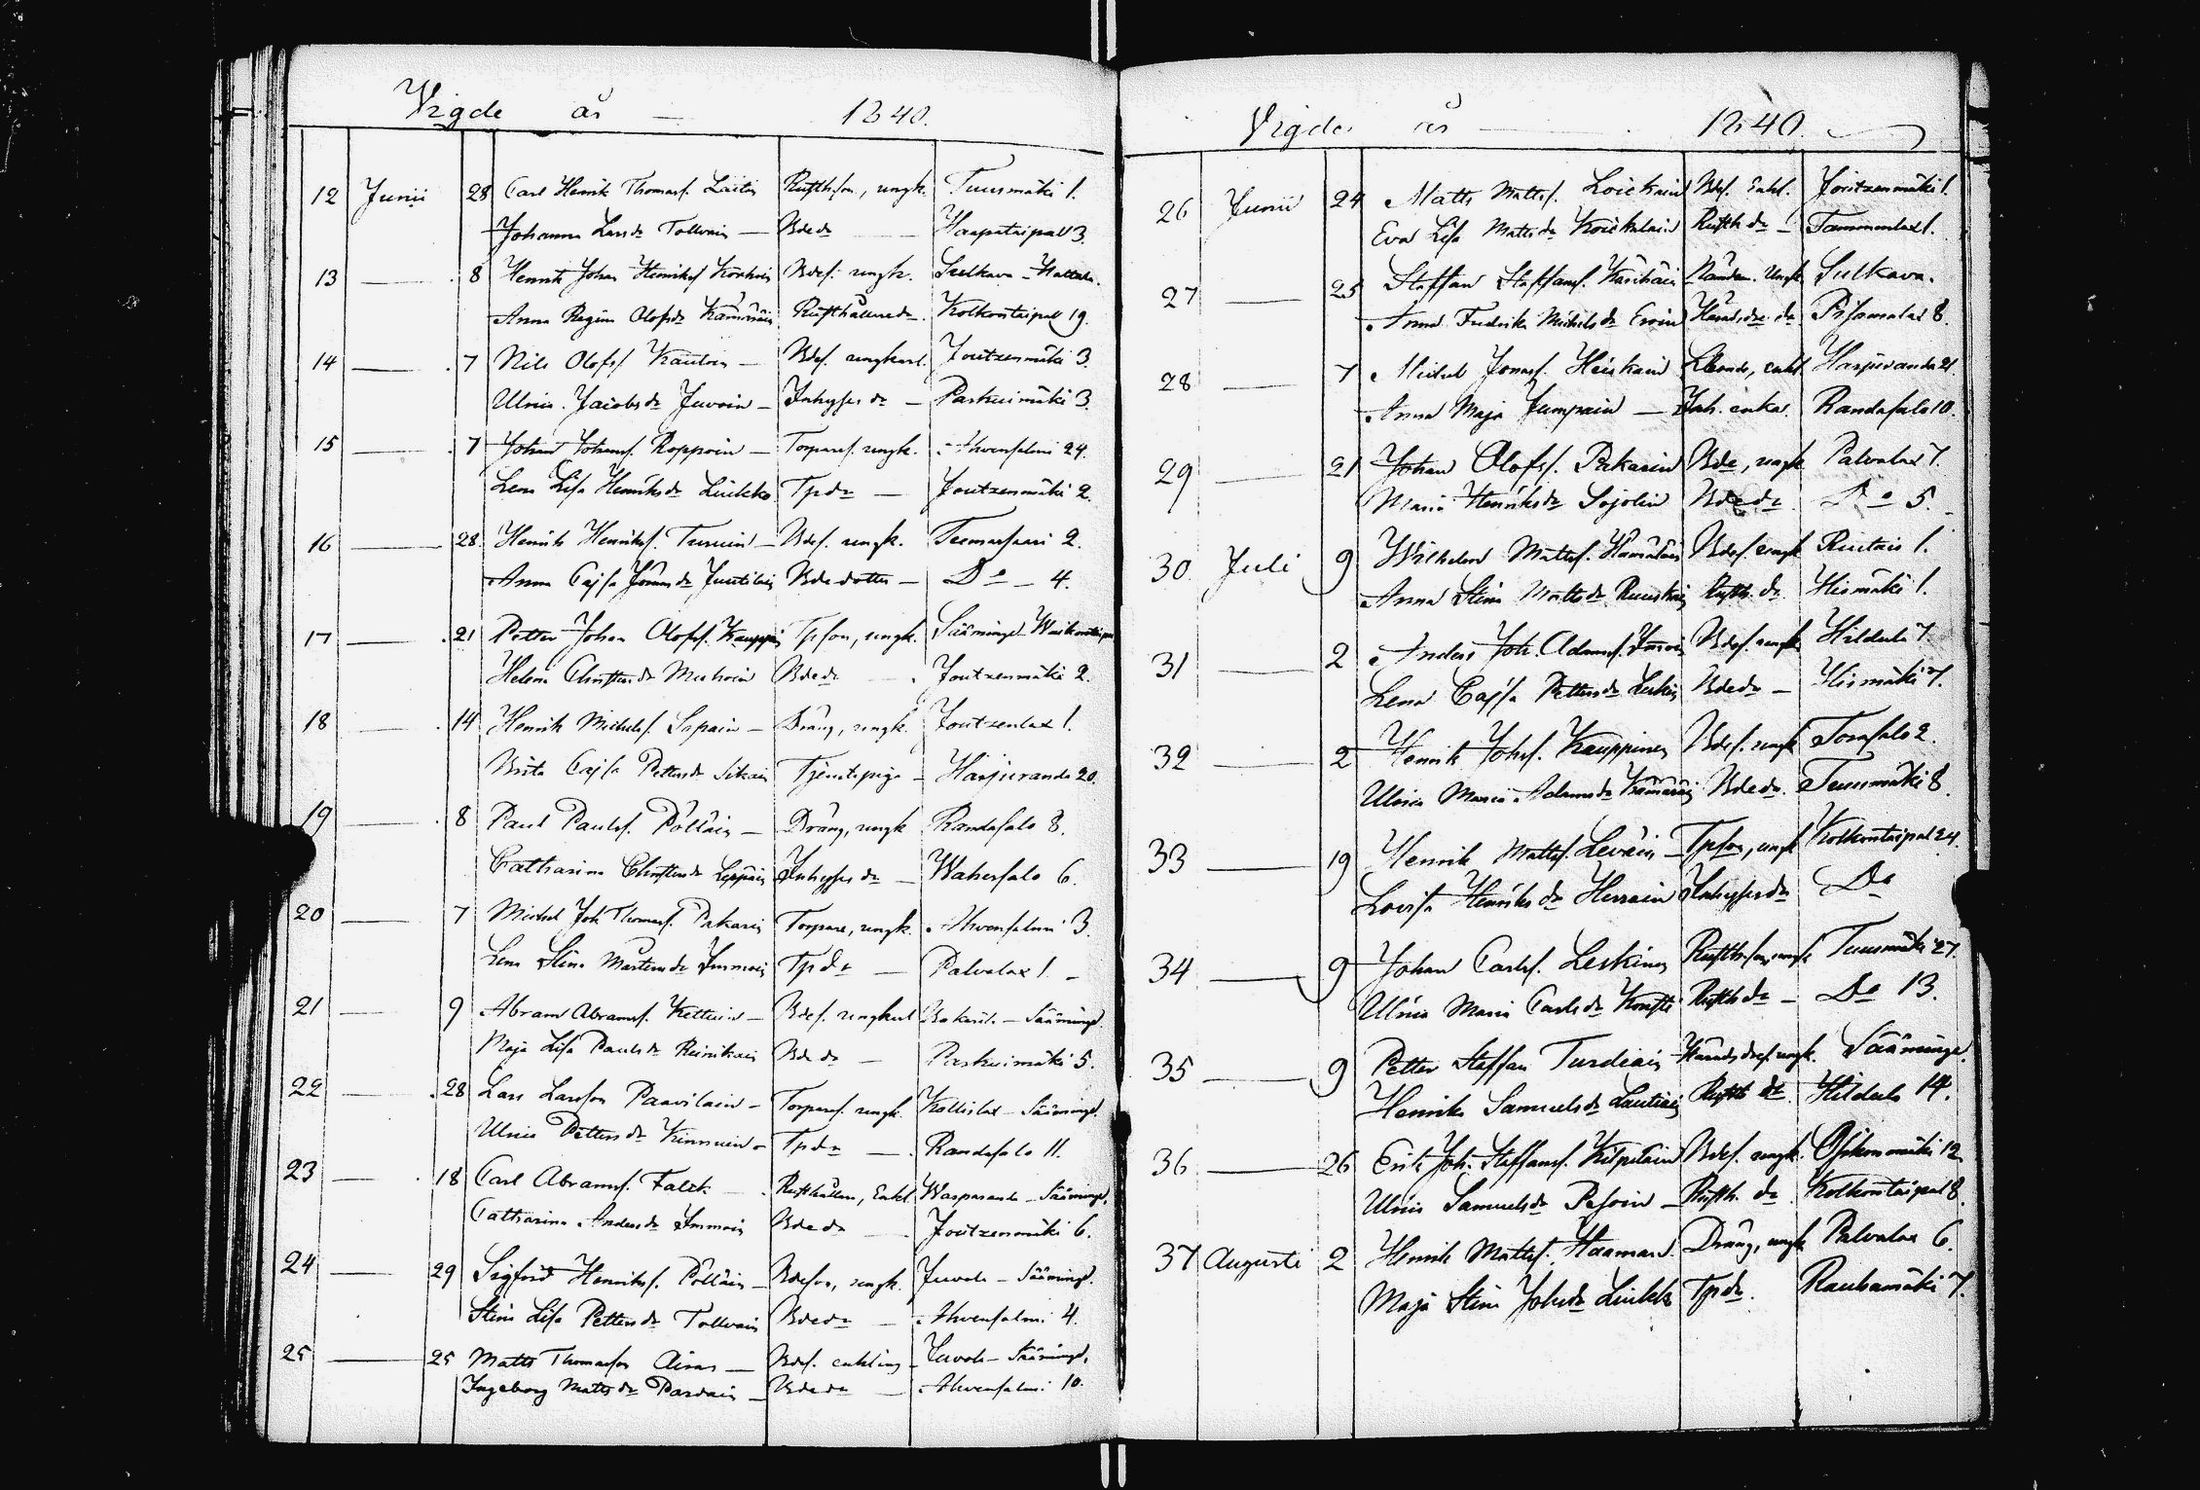 Vigde år — 1840.
12 Junii 28 Carl Henrik Thomasf. Laitin Rusth.son, ungk. Tuusmäki 1.
Johanna Larsdr Tolvain — Bdedr — Haapataipal 3.
13 — 8 Henrik Johan Henriksf Korhoin Bdef. ungk. Sulkava
Anna Regina Olofsdr Kämäräin Rusthållaredr Kolkontaipal 19.
14 — 7 Nils Olofsf Kautoin — Bdef. ungkarl Joutzenmäki 3.
Ulrica Jacobsdr Juvoin — Inhyses dr — Paskuimäki 3.
15 — 7 Johan Johansf. Roppoin — Torparef. ungk. Ahvensalmi 24.
Lena Lisa Henriksdr Liukko Tpdr — Joutzenmäki 2.
16 — 28 Henrik Henriksf. Turuin — Bdef. ungk. Teemassaari 2.
Anna Cajsa Jönsdr Juutilain Bdedotter — Do — 4.
17 — 21 Petter Johan Olofsf. Kauppin Tpson, ungk. Sääminge
Helena Christersdr Muhoin Bdedr — Joutzenmäki 2.
18 — 14 Henrik Michelsf. Sapain — Dräng, ungk. Joutzenlax 1.
Brita Cajsa Pettersdr Sikain Tjenstepiga — Harjuranda 20.
19 — 8 Paul Paulsf. Pölläin — Dräng, ungk Randasalo 8.
Catharina Christersdr Leppäin Inhyses dr — Wahersalo 6.
20 — 7 Michel Joh Thomasf. Pakarin Torpare, ungk. Ahvensalmi 3.
Lena Stina Mårtensdr Immoin Tpdr — Palvalax 1. —
21 — 9 Abram Abramsf. Kettuin — Bdef. ungkarl — Sääming.
Maja Lisa Paulsdr Reinikain Bdedr — Paskuimäki 5.
22 — 28 Lars Larsson Paavilain — Torparef. ungk. Kallislax — Sääming.
Ulrica Pettersdr Kinnuin — Tpdr — Randasalo 11.
23 — 18 Carl Abramsf. Falck — Rusthållare, Enkl. — Sääming.
Catharina Andersdr Immoin Bdedr — Joutzenmäki 6.
24 — 29 Sigfrid Henriksf. Pölläin — Bdeson, ungk. Juvola — Sääming.
Stina Lisa Pettersdr Tolvain Bdedr — Ahvensalmi 4.
25 — 25 Matts Thomasson Airas — Bdef. enkling — Juvola — Sääming.
Ingeborg Mattsdr Pardain — Bdedr — Ahvensalmi 10.
Vigde år — 1840
26 Junii 24 Matts Mattsf. Loickain Bdef. Enkl. Joutzenmäki 1.
Eva Lisa Mattsdr Koickalain Rusth dr — Tammenlax 1.
27 — 25 Staffan Staffansf. Käuhäin Ungk Sulkava.
Anna Fredrika Michelsdr Eroin Härads dr Pisamalax 8.
28 — 7 Michel Jonasf. Heiskain enkl. Harjuranda 21
Anna Maja Jumpain — Inh. enka. Randasalo 10.
29 — 21 Johan Olofsf. Pakarin Bde, ungk Palvalax 7.
Maria Henriksdr Sojolin Bdedr Do 5.
30 Juli 9 Wilhelm Mattsf. Hämäläin Bdef. ungk Ruitais 1.
Anna Stina Mattsdr Ruuskain Rusth. dr. Hirmäki 1.
31 — 2 Anders Joh. Adamsf. Immoin Bdef. ungk Hildula 7.
Lena Cajsa Pettersdr Leskin Bdedr — Hirmäki 7.
32 — 2 Henrik Johsf. Kauppinen Bdef. ungk Torasalo 2.
Ulrica Maria Adamsdr Kämäräin Bdedr. Tuusmäki 8.
33 — 19 Henrik Mattsf. Leväin — Tpson, ungk Kolkontaipal 24.
Lovisa Henriksdr Herrain Inhysesdr Do
34 — 9 Johan Carlsf. Leskinen Rusth.son, ungk Tuusmäki 27.
Ulrica Maria Carlsdr Konsti Rusth dr — Do 13.
35 — 9 Petter Staffan Turdiain Häradsdref. ungk. Sääminge.
Henrika Samuelsdr Lautiain Rusth dr. Hildula 14.
36 — 26 Erik Joh. Staffansf. Kilpiläin Bdef. ungk. Osikonmäki 12
Ulrica Samuelsdr Pesoin — Rusth. dr. Kolkontaipal 8.
37 Augusti 2 Henrik Mattsf. Haaman. Dräng, ungk Palvalax 6.
Maja Stina Johsdr Liukko Tpdr. Rauhamäki 7.